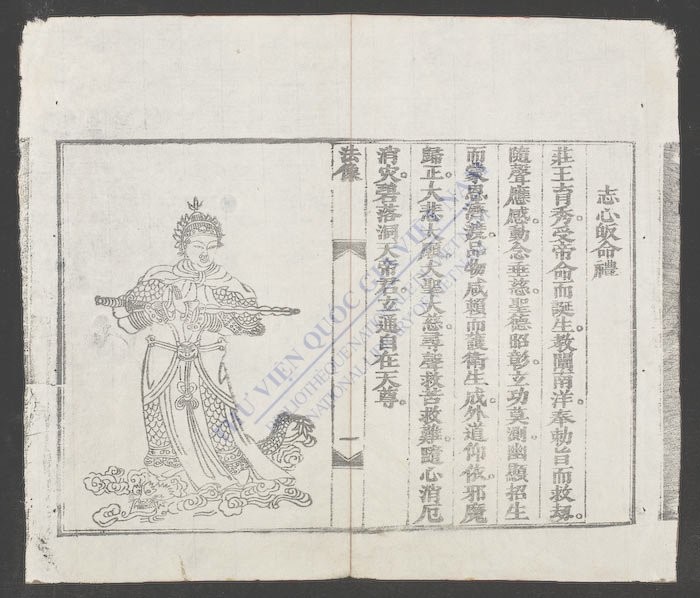 志心皈命禮
莊王育秀。受帝命而誕生。教闡南洋。奉勅旨而救劫。
隨聲應感。動念垂慈。聖德昭彰。立功莫測。幽顯招生
而蒙恩濟渡。品物咸賴而護衛生成。外道仰依。邪魔
歸正。大悲大願。大聖大慈。尋聲救苦救難。隨心消厄
消灾。碧落洞天帝君。玄通自在天尊。
法像
一
THƯ VIỆN QUỐC GIA VIỆT NAM
BIBLIOTHÈQUE NATIONALE DU VIETNAM
NATIONAL LIBRARY OF VIETNAM